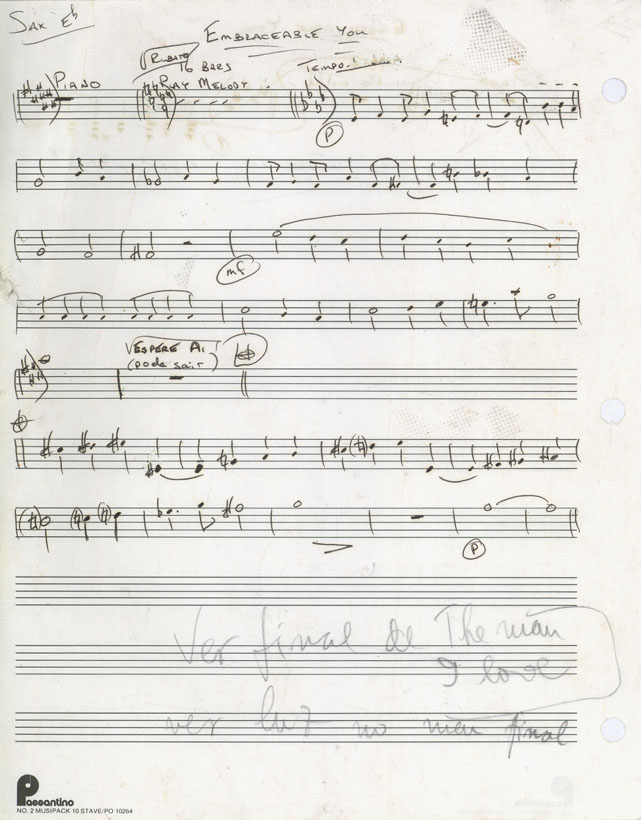 Sax Eb
EMBRACEABLE YOU
RUBATO
16 BARS
TEMPO
PIANO
RAY MELODY
P
mf
VESPERE AI
(pode sair)
P
Ver final de The man
I love
ver luz no meu final
Passantino
NO. 2 MUSIPACK 10 STAVE/PO 10264